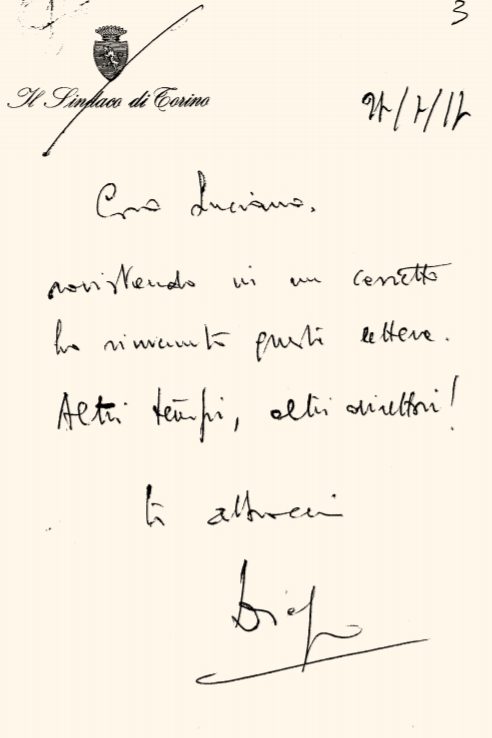 3
Il Sindaco di Torino
Caro Luciano,
rovistando in un cassetto
ho rinvenuto questa lettera.
Altri tempi, altri direttori!
ti abbraccio